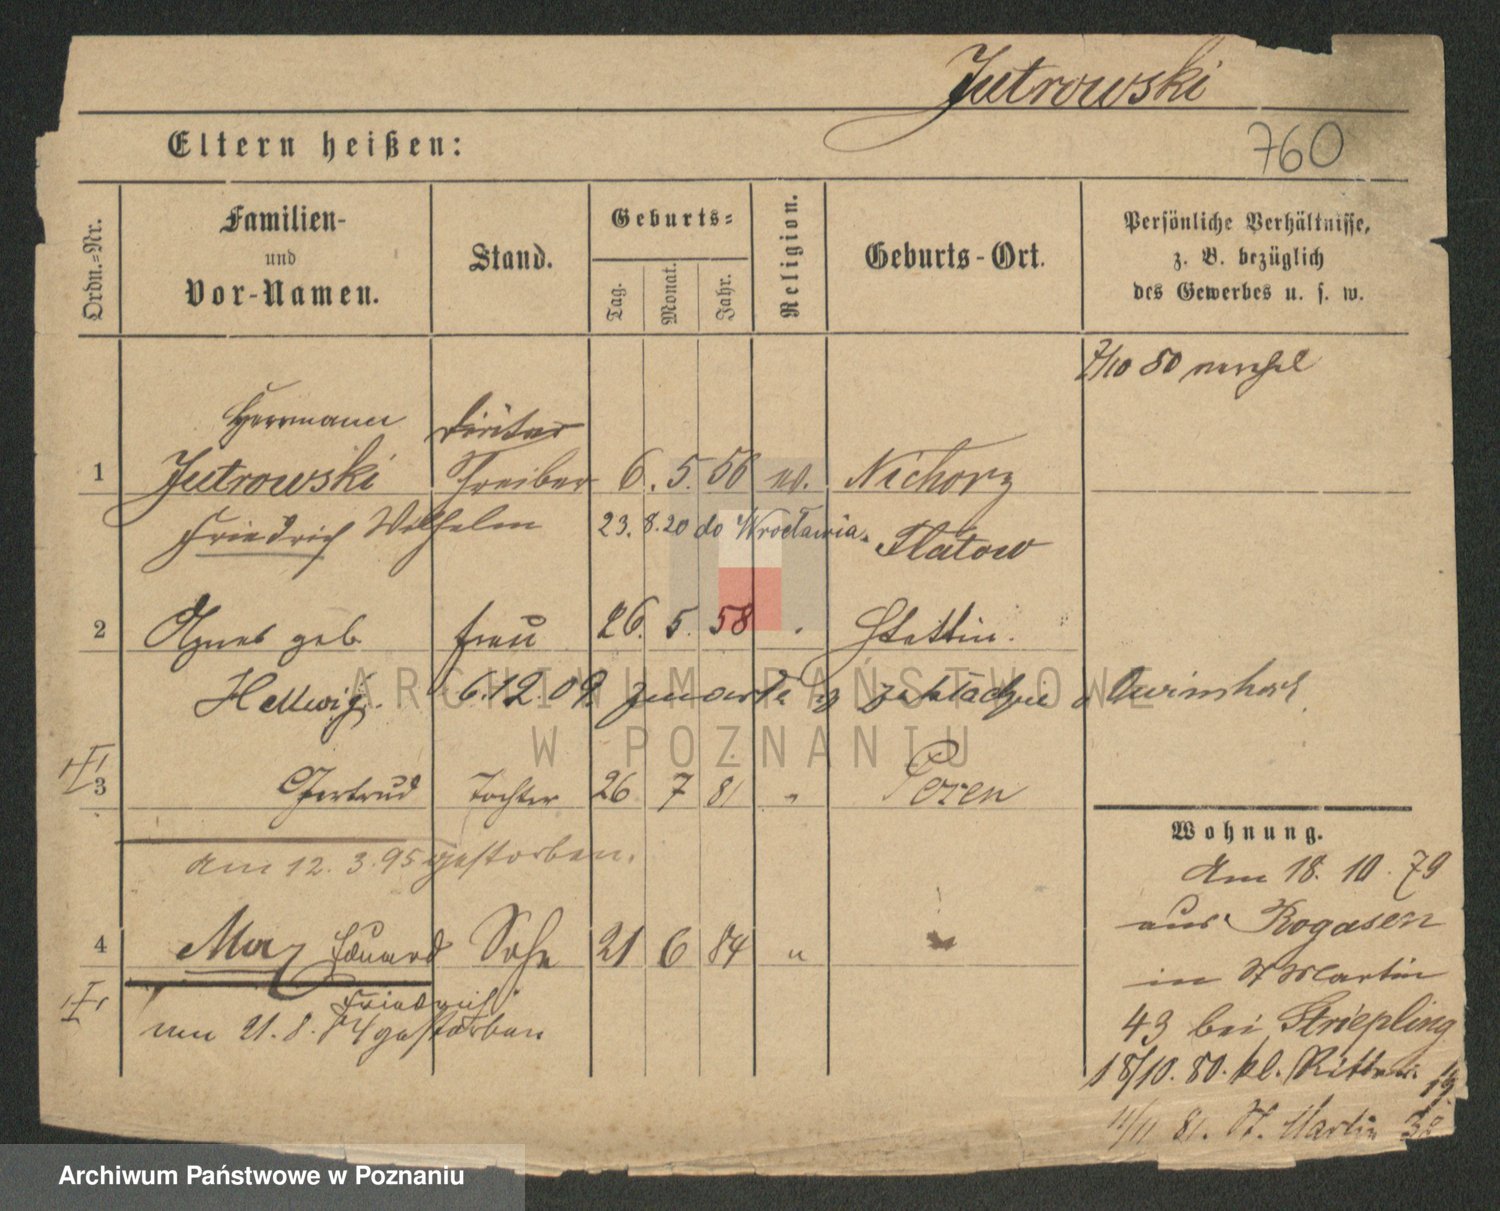 Jutrowski
760
Eltern heißen:
Ordn.=Nr.
Familien-
und
Vor-Namen.
Stand.
Geburts=
Tag.
Monat.
Jahr.
Religion.
Geburts-Ort.
Persönliche Verhältnisse,
z. B. bezüglich
des Gewerbes u. s. w.
7/10 80
Herrmann
1 Jutrowski Treiber 6. 5. 56 ev. Nichorz
Friedrich Wilhelm 23. 8. 20 do Wrocławia. Flatow
2 Agnes geb. Frau 26. 5. 58 Stettin.
Hellwig. 6.12.09 Owinskach
3 Gertrud Tochter 26 7 81 " Posen
am 12. 3. 95 gestorben.
4 Max Eduard Sohn 21 6 84 "
Friedrich
am 21. 8. 84 gestorben
Wohnung.
Am 18. 10. 79
aus Rogasen
in St Martin
43 bei Striepling
18/10. 80. kl. Ritter
11/11 81. St. Martin 38
ARCHIWUM PAŃSTWOWE
W POZNANIU
Archiwum Państwowe w Poznaniu